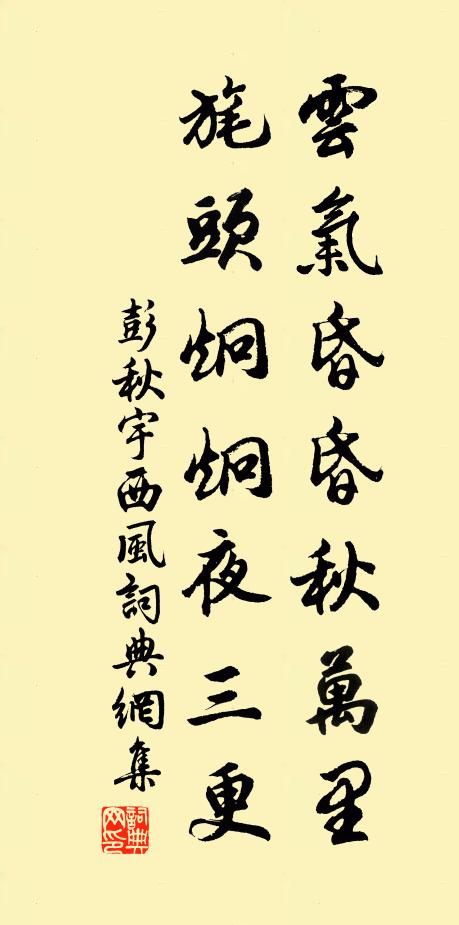 雲氣昏昏秋萬里
旄頭炯炯夜三更
彭秋宇西風詞典網集
詞典網印